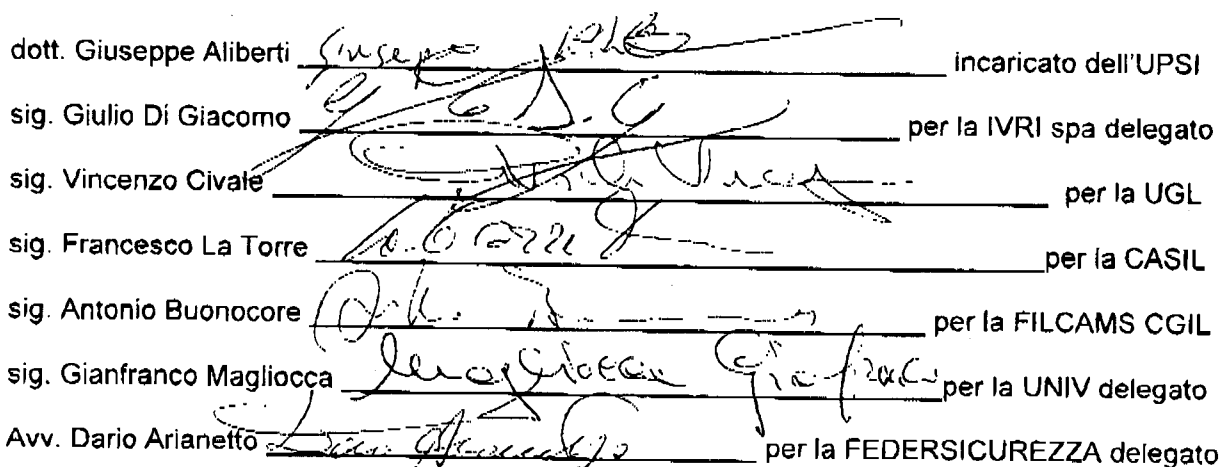 dott. Giuseppe Aliberti Giuseppe incaricato dell'UPSI
sig. Giulio Di Giacomo per la IVRI spa delegato
sig. Vincenzo Civale per la UGL
sig. Francesco La Torre per la CASIL
sig. Antonio Buonocore per la FILCAMS CGIL
sig. Gianfranco Magliocca Magliocca per la UNIV delegato
Avv. Dario Arianetto per la FEDERSICUREZZA delegato